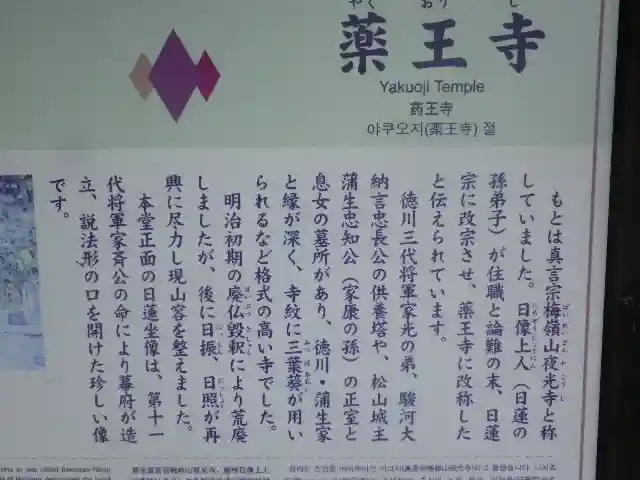 やくおうじ
薬王寺
Yakuoji Temple
药王寺
야쿠오지(薬王寺) 절
もとは真言宗梅嶺山夜光寺と称
していました。日像上人（日蓮の
孫弟子）が住職と論難の末、日蓮
宗に改宗させ、薬王寺に改称した
と伝えられています。
徳川三代将軍家光の弟、駿河大
納言忠長公の供養塔や、松山城主
蒲生忠知公（家康の孫）の正室と
息女の墓所があり、徳川・蒲生家
と縁が深く、寺紋に三葉葵が用い
られるなど格式の高い寺でした。
明治初期の廃仏毀釈により荒廃
しましたが、後に日振、日照が再
興に尽力し現山容を整えました。
本堂正面の日蓮坐像は、第十一
代将軍家斉公の命により幕府が造
立、説法形の口を開けた珍しい像
です。